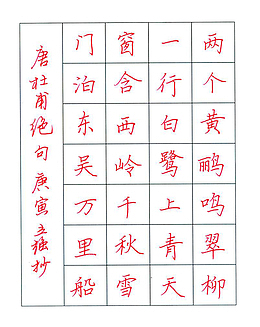 两个黄鹂鸣翠柳
一行白鹭上青天
窗含西岭千秋雪
门泊东吴万里船
唐杜甫绝句 庚寅立强抄